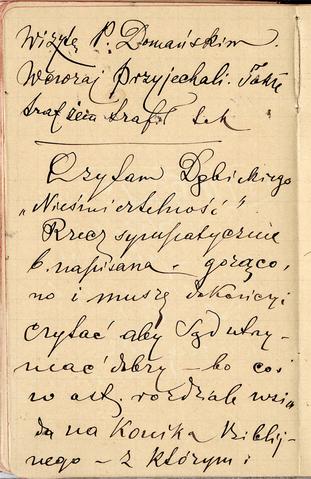 Wizytę P. Domańskim.
Wczoraj przyjechali. Także
trafił
Czytam Dębickiego
„Nieśmiertelność”.
Rzecz sympatycznie
b. napisana – gorąco,
no i muszę dokończyć
czytać aby Sąd utrzy-
mać dobry – bo coś
w ost. rozdziale wsia
da na Konika biblij-
nego – z którym i